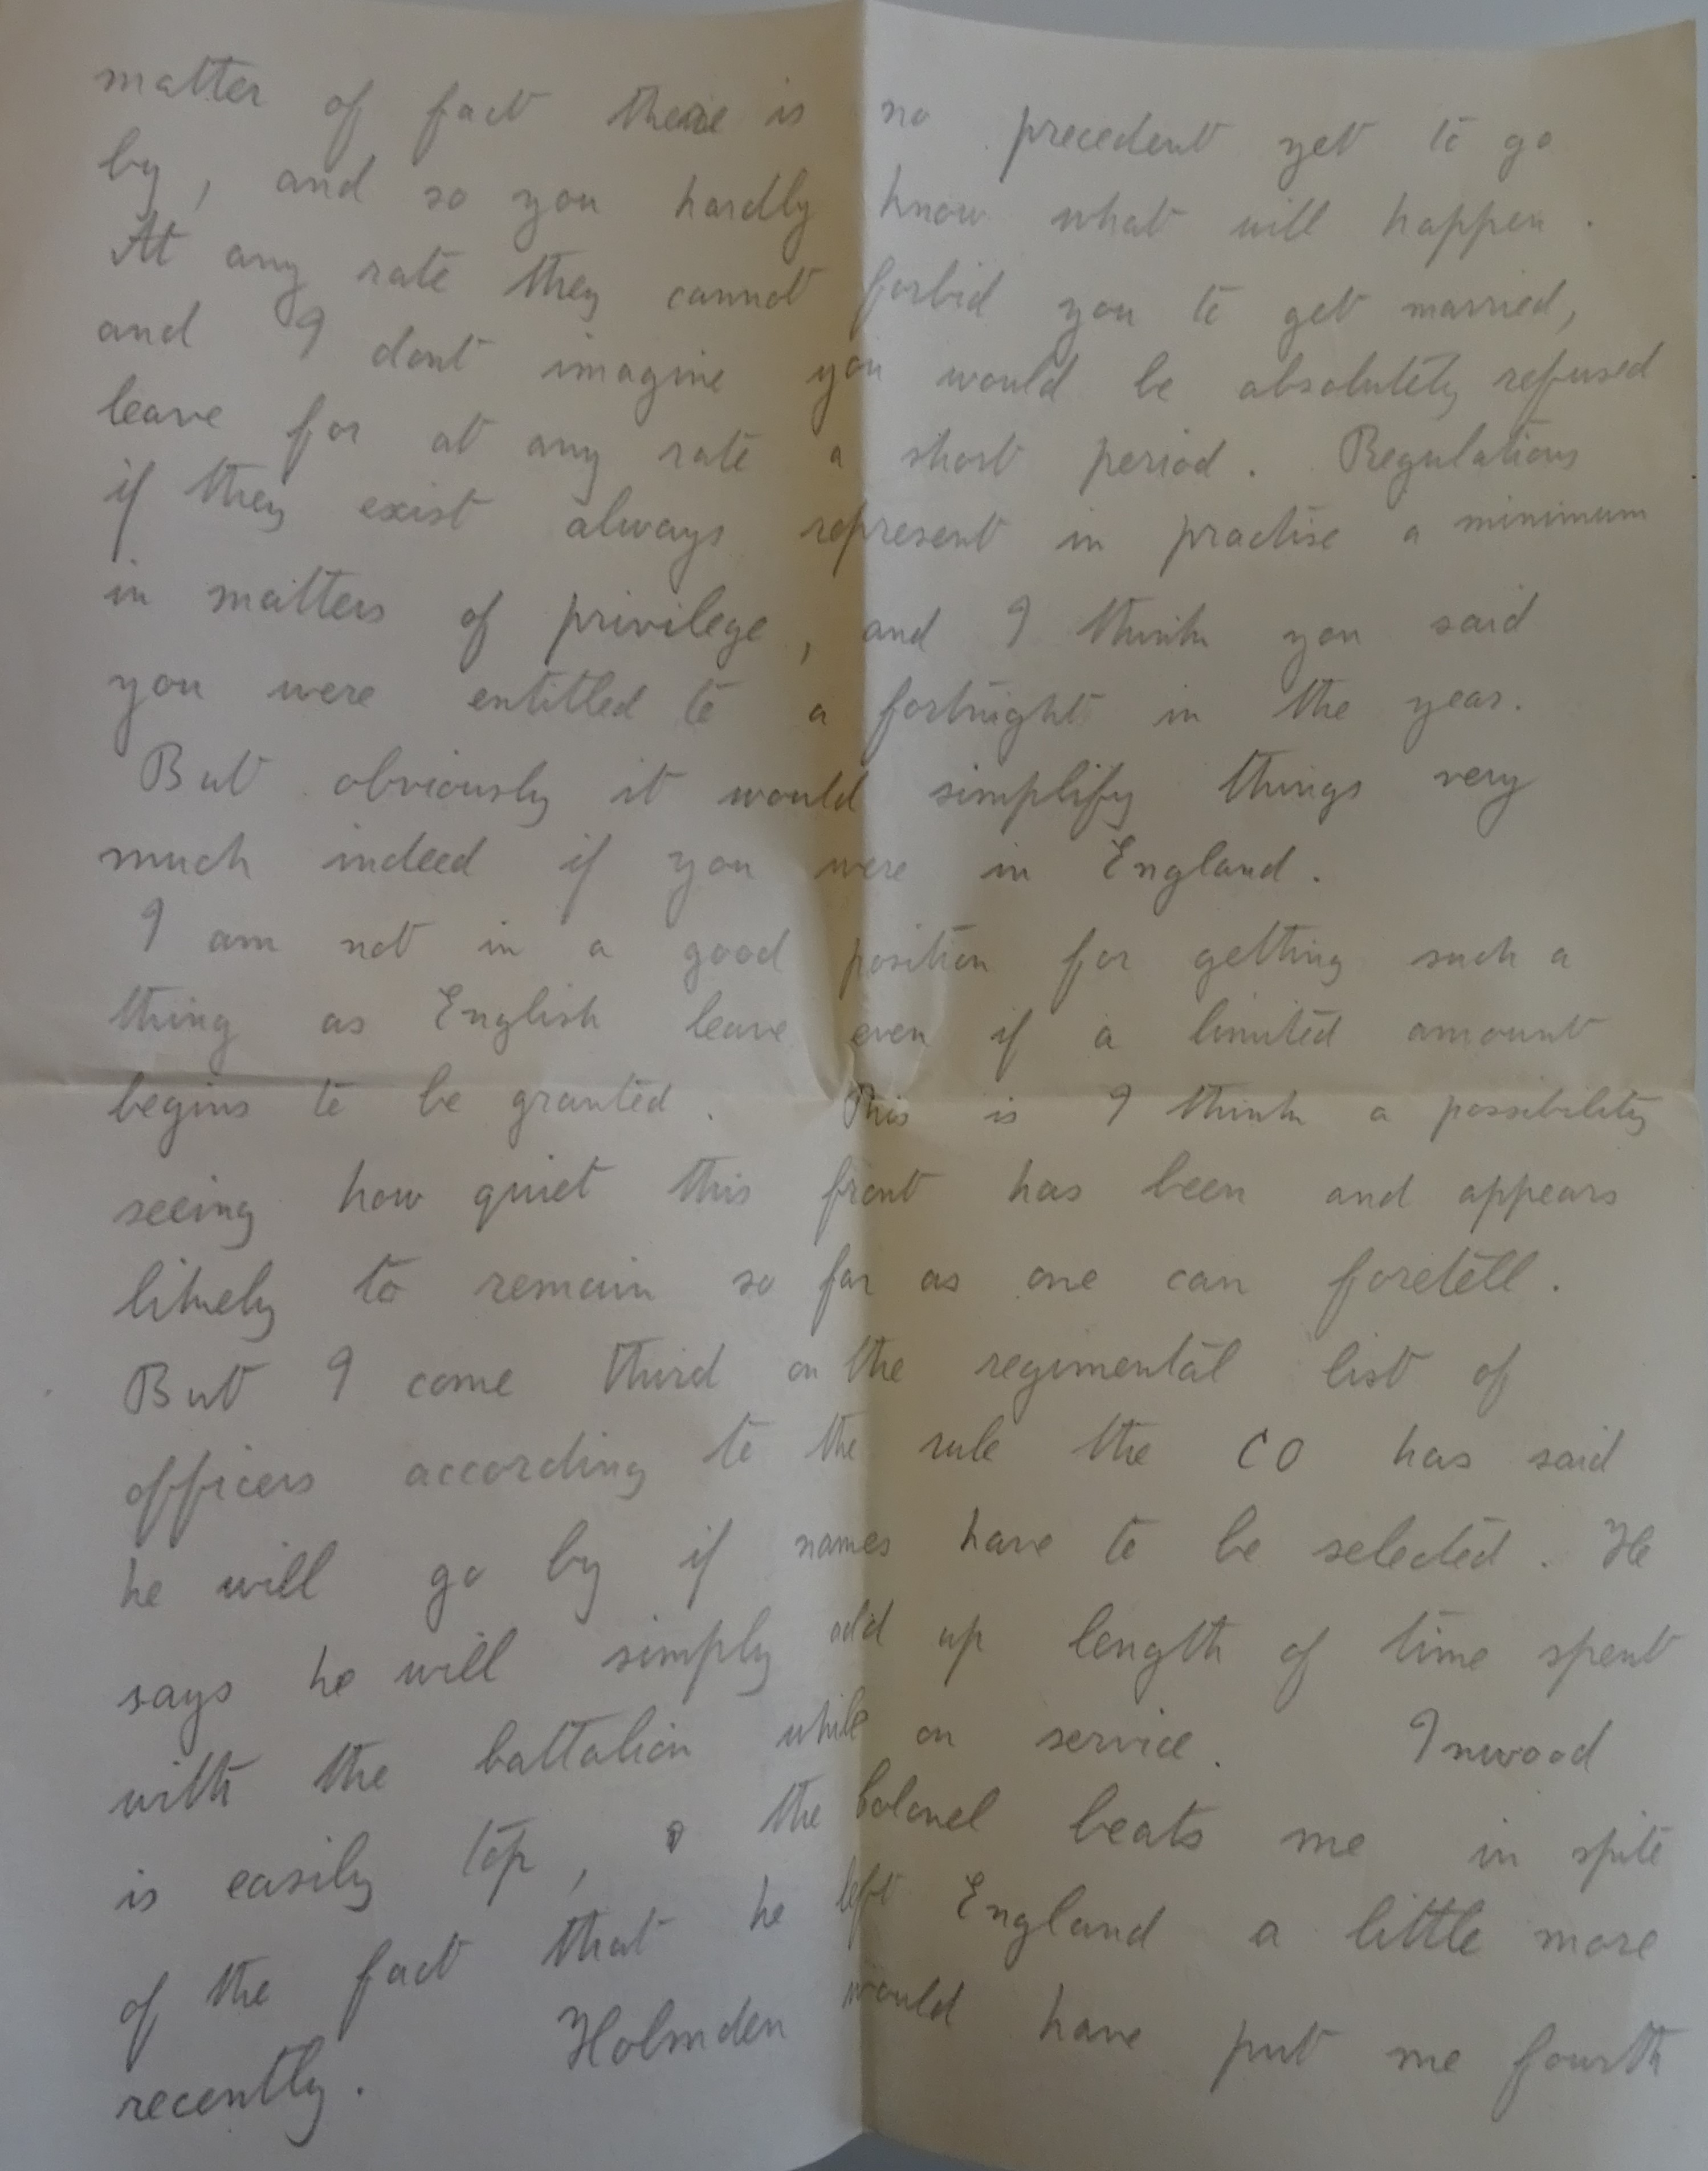 matter of fact there is no precedent yet to go
by, and so you hardly know what will happen.
At any rate they cannot forbid you to get married,
and I dont imagine you would be absolutely refused
leave for at any rate a short period. Regulations
if they exist always represent in practise a minimum
in matters of privilege, and I think you said
you were entitled to a fortnight in the year.
But obviously it would simplify things very
much indeed if you were in England.
I am not in a good position for getting such a
thing as English leave even if a limited amount
begins to be granted. This is I think a possibility
seeing how quiet this front has been and appears
likely to remain so far as one can foretell.
But I come third on the regimental list of
officers according to the rule the CO has said
he will go by if names have to be selected. He
says he will simply add up length of time spent
with the battalion while on service. Inwood
is easily top, the Colonel beats me in spite
of the fact that he left England a little more
recently. Holmden would have put me fourth